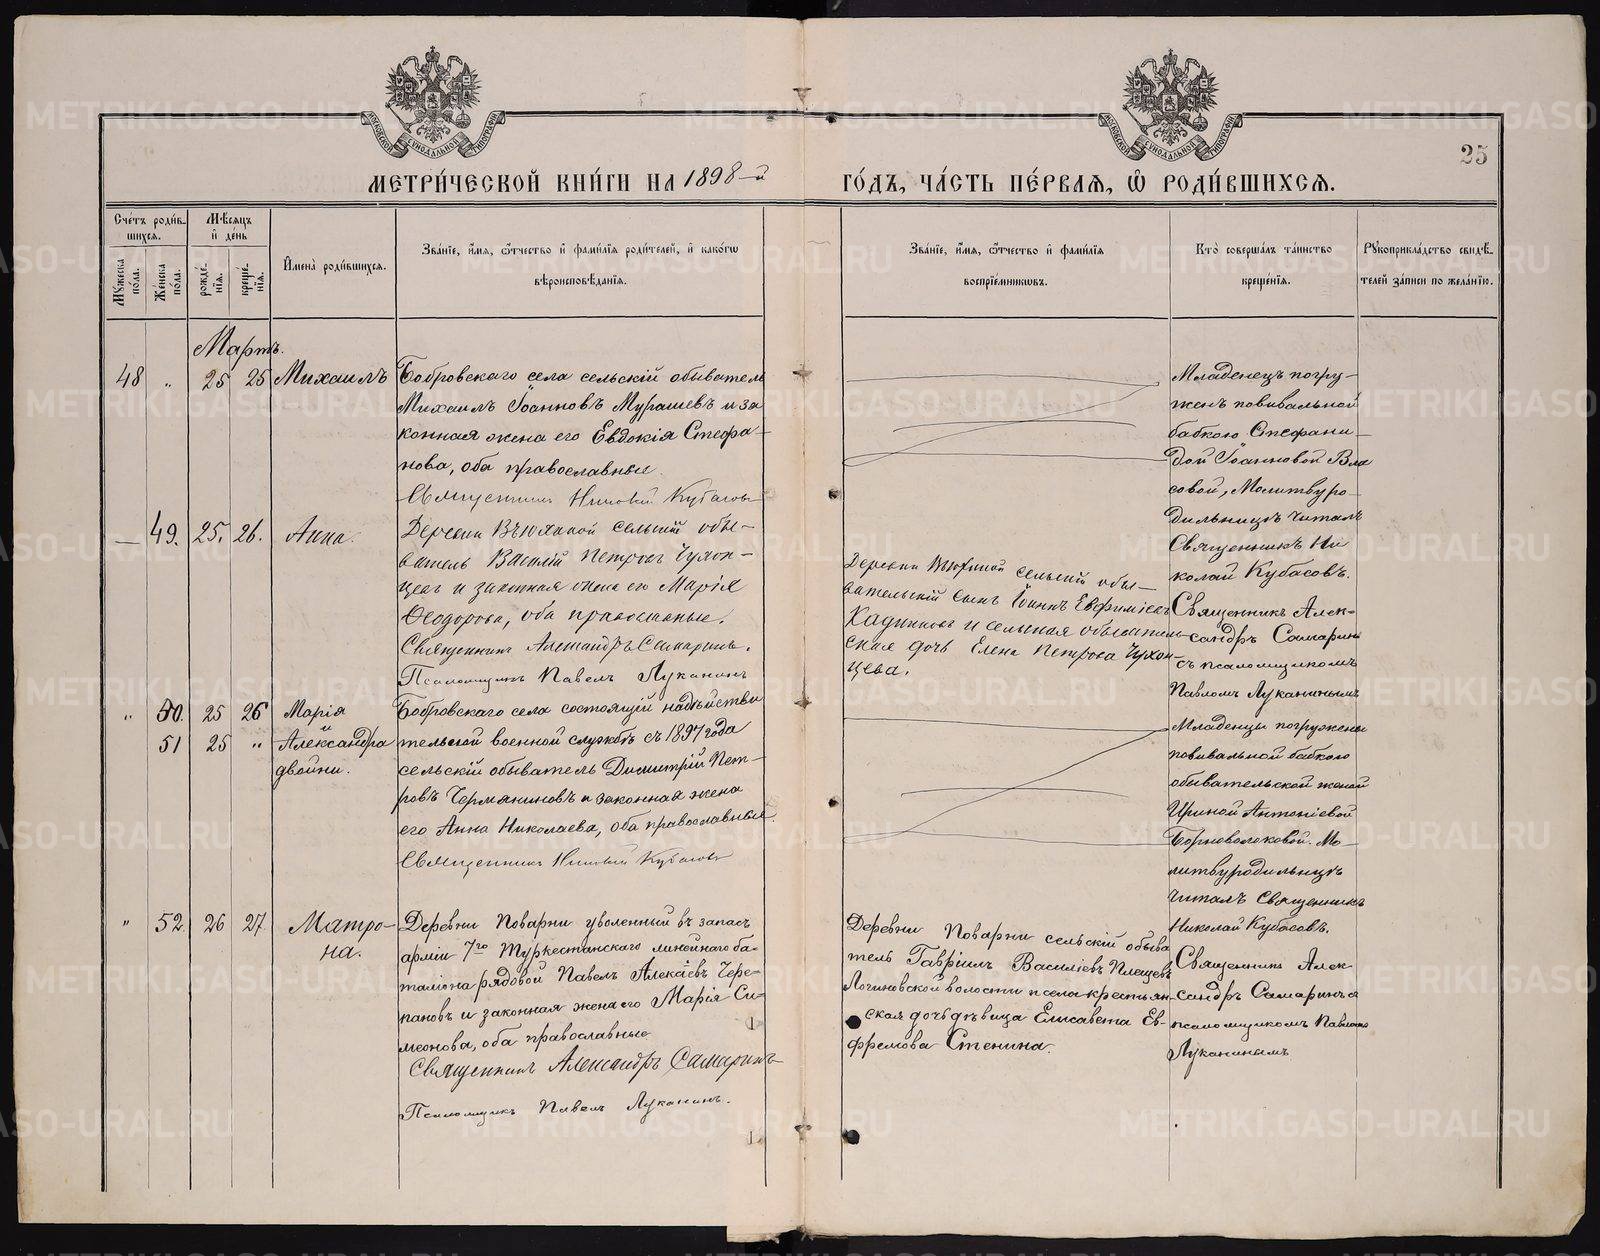 25
МЕТРИ́ЧЕСКОЙ КНИ́ГИ НА 1898-й
ГО́ДЪ, ЧА́СТЬ ПЕ́РВАЯ, Ѡ РОДИ́ВШИХСЯ.
Сче́тъ роди́вшихся.
Му́жеска по́ла.
Же́нска по́ла.
Мѣ́сяцъ и́ де́нь
рожде́нїя.
креще́нїя.
И҆мена̀ роди́вшихся.
Зва́нїе, и҆́мя, ѻ҆́тчество и҆ фами́лїя роди́телей, и҆ како́гѡ
вѣроисповѣ́данїя.
Зва́нїе, и҆́мя, ѻ҆́тчество и҆ фами́лїя
воспрїе́мникѡвъ.
Кто̀ соверша́лъ та́инство
креще́нїя.
Рꙋкоприкла́дство свидѣ́телей за́писи по жела́нїю.
Мартъ.
48 " 25 25 Михаилъ
Бобровскаго села сельскій обыватель
Михаилъ Іоанновъ Мурашевъ и за
конная жена его Евдокія Стефа-
нова, оба православные.
Священникъ Николай Кубасовъ
Младенецъ погру-
женъ повивальной
бабкою Стефани-
дой Іоанновой Вла
совой, Молитву ро-
дильницѣ читалъ
Священникъ Ни
колай Кубасовъ.
— 49. 25. 26. Анна.
Деревни Вьюхиной сельскій обы-
ватель Василій Петровъ Чухон-
цевъ и законная жена его Марія
Ѳеодорова, оба православные.
Священникъ Александръ Самаринъ.
Псаломщикъ Павелъ Луканинъ
Деревни Вьюхиной сельскій обы-
вательскій сынъ Іоаннъ Евфиміевъ
Кадниковъ и сельская обыватель-
ская дочь Елена Петрова Чухон-
цева.
Священникъ Алек-
сандръ Самаринъ
съ псаломщикомъ
Павломъ Луканинымъ
" 50. 25 26 Марія
и
51 25 " Александра
двойни.
Бобровскаго села состоящій на дѣйстви
тельной военной службѣ съ 1897 года
сельскій обыватель Димитрій Пет-
ровъ Черманиновъ и законная жена
его Анна Николаева, оба православные.
Священникъ Николай Кубасовъ
Младенцы погружены
повивальной бабкою
обывательской женой
Ириной Антоніевой
Борноволоковой. Мо-
литву родильницѣ
читалъ Священникъ
Николай Кубасовъ.
" 52. 26 27 Матро-
на.
Деревни Поварни уволенный въ запасъ
арміи 7го Туркестанскаго линейнаго ба-
таліона рядовой Павелъ Алексіевъ Чере-
пановъ и законная жена его Марія Си-
меонова, оба православные
Священникъ Александръ Самаринъ
Псаломщикъ Павелъ Луканинъ.
Деревни Поварни сельскій обыва
тель Гавріилъ Василіевъ Плещевъ
Логиновской волости и села крестьян-
ская дочь дѣвица Елисавета Ев-
фремова Стенина.
Священникъ Алек
сандръ Самаринъ съ
псаломщикомъ Павломъ
Луканинымъ
METRIKI.GASO-URAL.RU